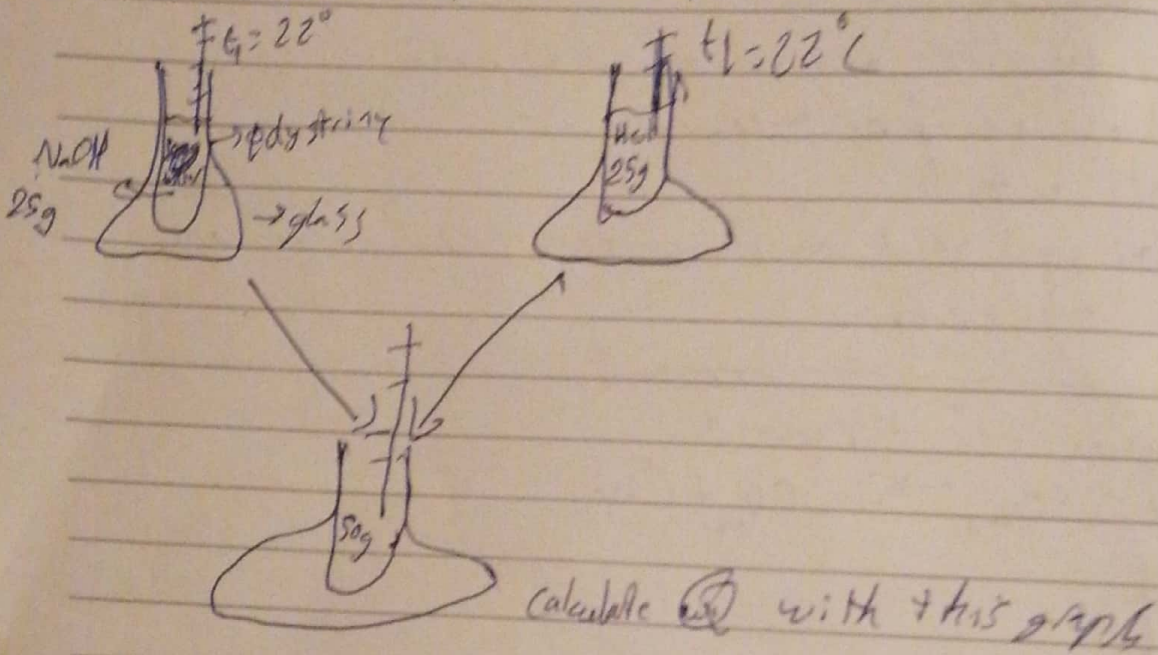 t₁ = 22°
t1 = 22°C
NaOH
25g
→ polystriny
→ glass
HCl
25g
50g
Calculate Q with this graph